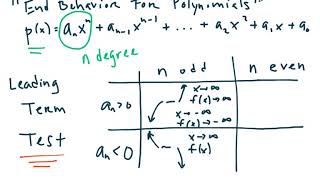 " End Behavior For Polynomials "
p(x) = aₙxⁿ + aₙ₋₁xⁿ⁻¹ + ... + a₂x² + a₁x + a₀
n degree
Leading
Term
Test
n odd
n even
aₙ>0
x→∞
f(x)→∞
x→-∞
f(x)→-∞
aₙ<0
x→∞
f(x)